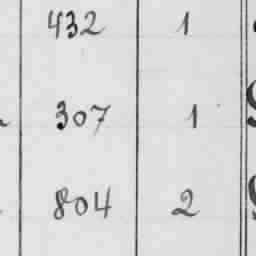 432 1
307 1
804 2